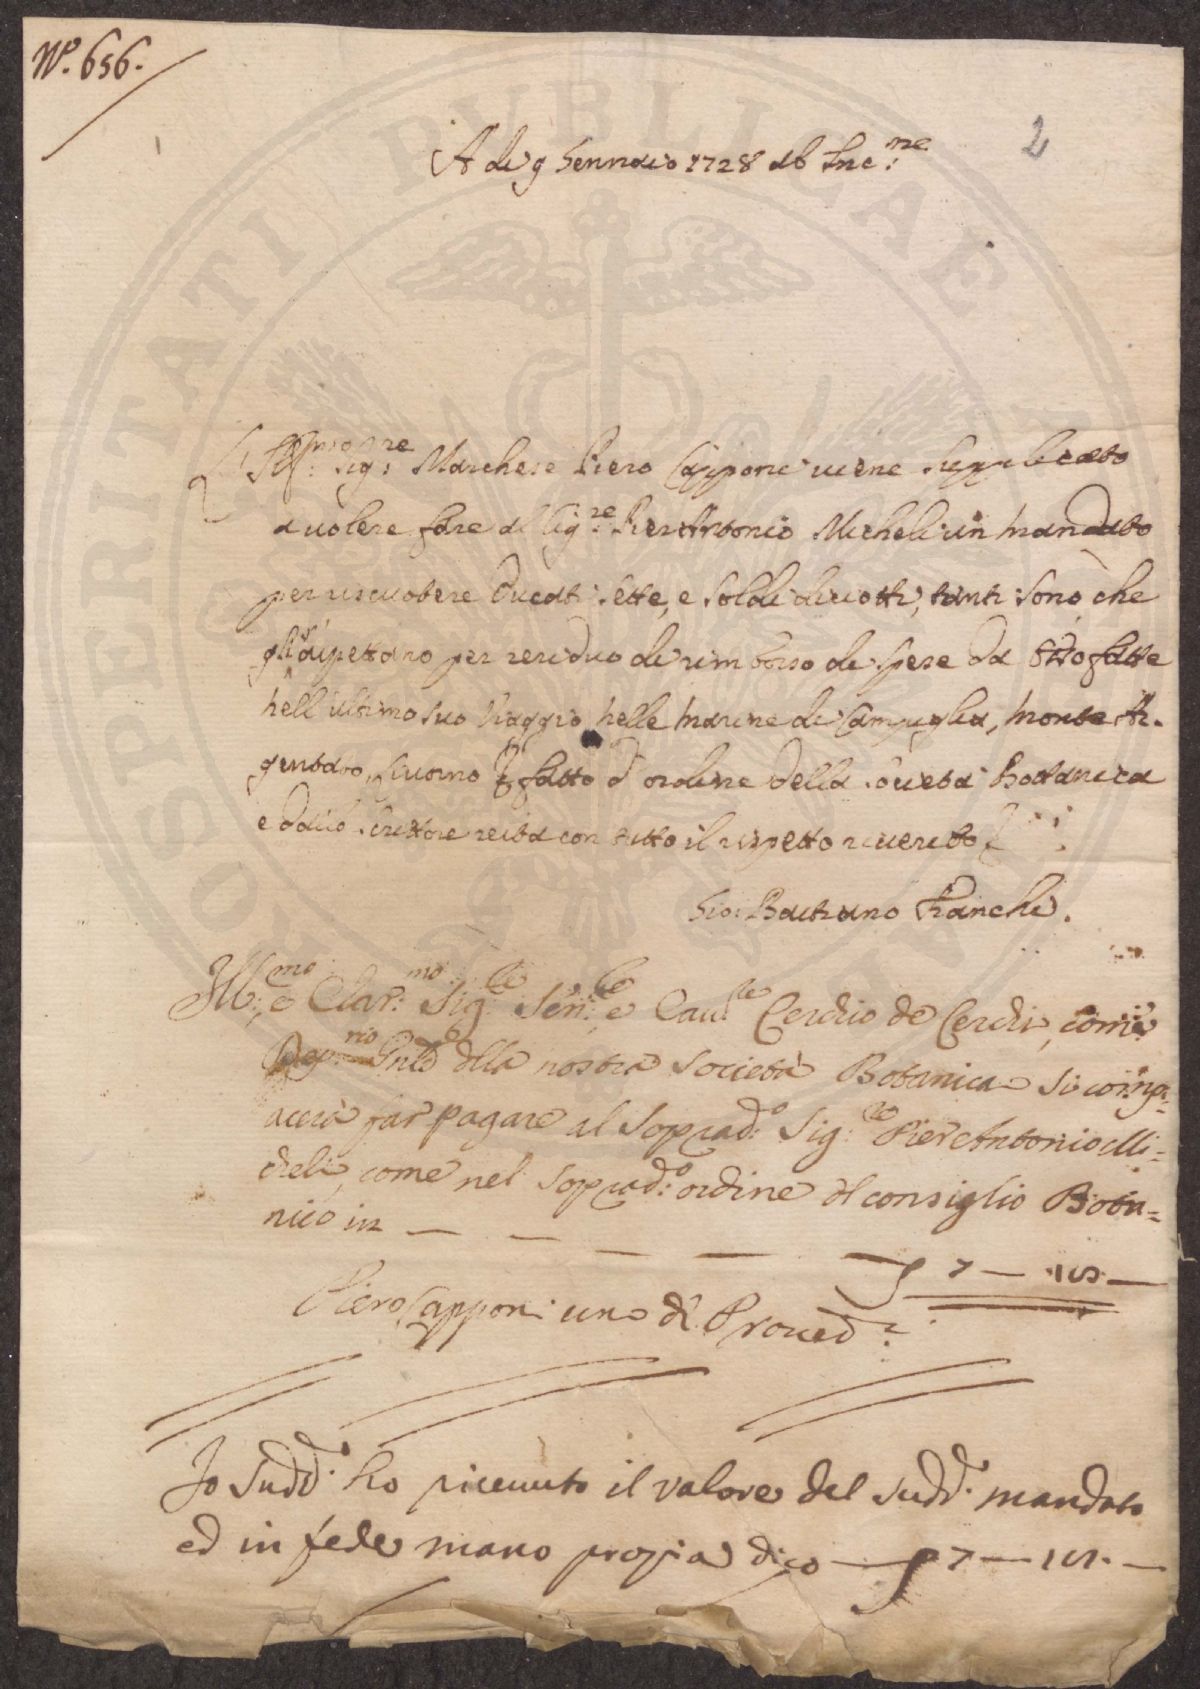 N.º 656.
2
A di 9 Gennaio 1728 ab Inc:ne
L'Ill:mo Sig:re Marchese Piero Capponi viene supplicato
a volere fare al Sig:re Pier Antonio Micheli un mandato
per riscuotere Ducati sette, e soldi diciotti, tanti sono che
gli aspettano per residuo di rimborso di spese da fatte
nell'ultimo suo Viaggio nelle marine di Campiglia, monte Ar-
gentaro, Livorno fatto d'ordine della società Bottanica
e dallo scrittore resta con tutto il rispetto riverito
Gio: Battano Franchi.
Ill:mo e Clar:mo Sig:re Sen:re e Cau:re Cerchio de Cerchi, come
Pnte dlla nostra società Botanica si comp-
acerà far pagare al soprad:o Sig:re Pier Antonio Mi-
cheli, come nel soprad:o ordine dl consiglio Bota-
nico in — — — — — 7 — 18 —
Piero Capponi uno d' Proved:re
Io sudd:o ho ricevuto il valore del sudd:o mandato
ed in fede mano propria dico — 7 — 18. —
PROSPERITATI PUBLICAE